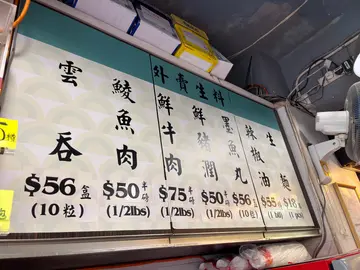 外賣生料
雲吞
$56盒
(10粒)
鯪魚肉
$50半磅
(1/2lbs)
鮮牛肉
$75半磅
(1/2lbs)
鮮豬潤
$50半磅
(1/2lbs)
墨魚丸
$56盒
(10粒)
辣椒油
$55
生麵
$18